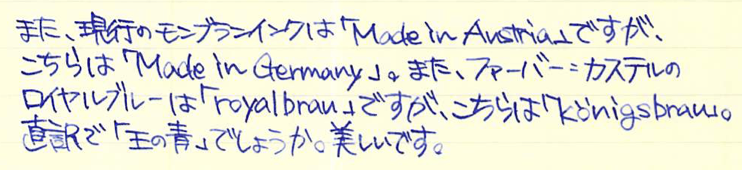 また、現行のモンブランインクは「Made in Austria」ですが、
こちらは「Made in Germany」。また、ファーバー=カステルの
ロイヤルブルーは「royalbrau」ですが、こちらは「königsbrau」。
直訳で「王の青」でしょうか。美しいです。